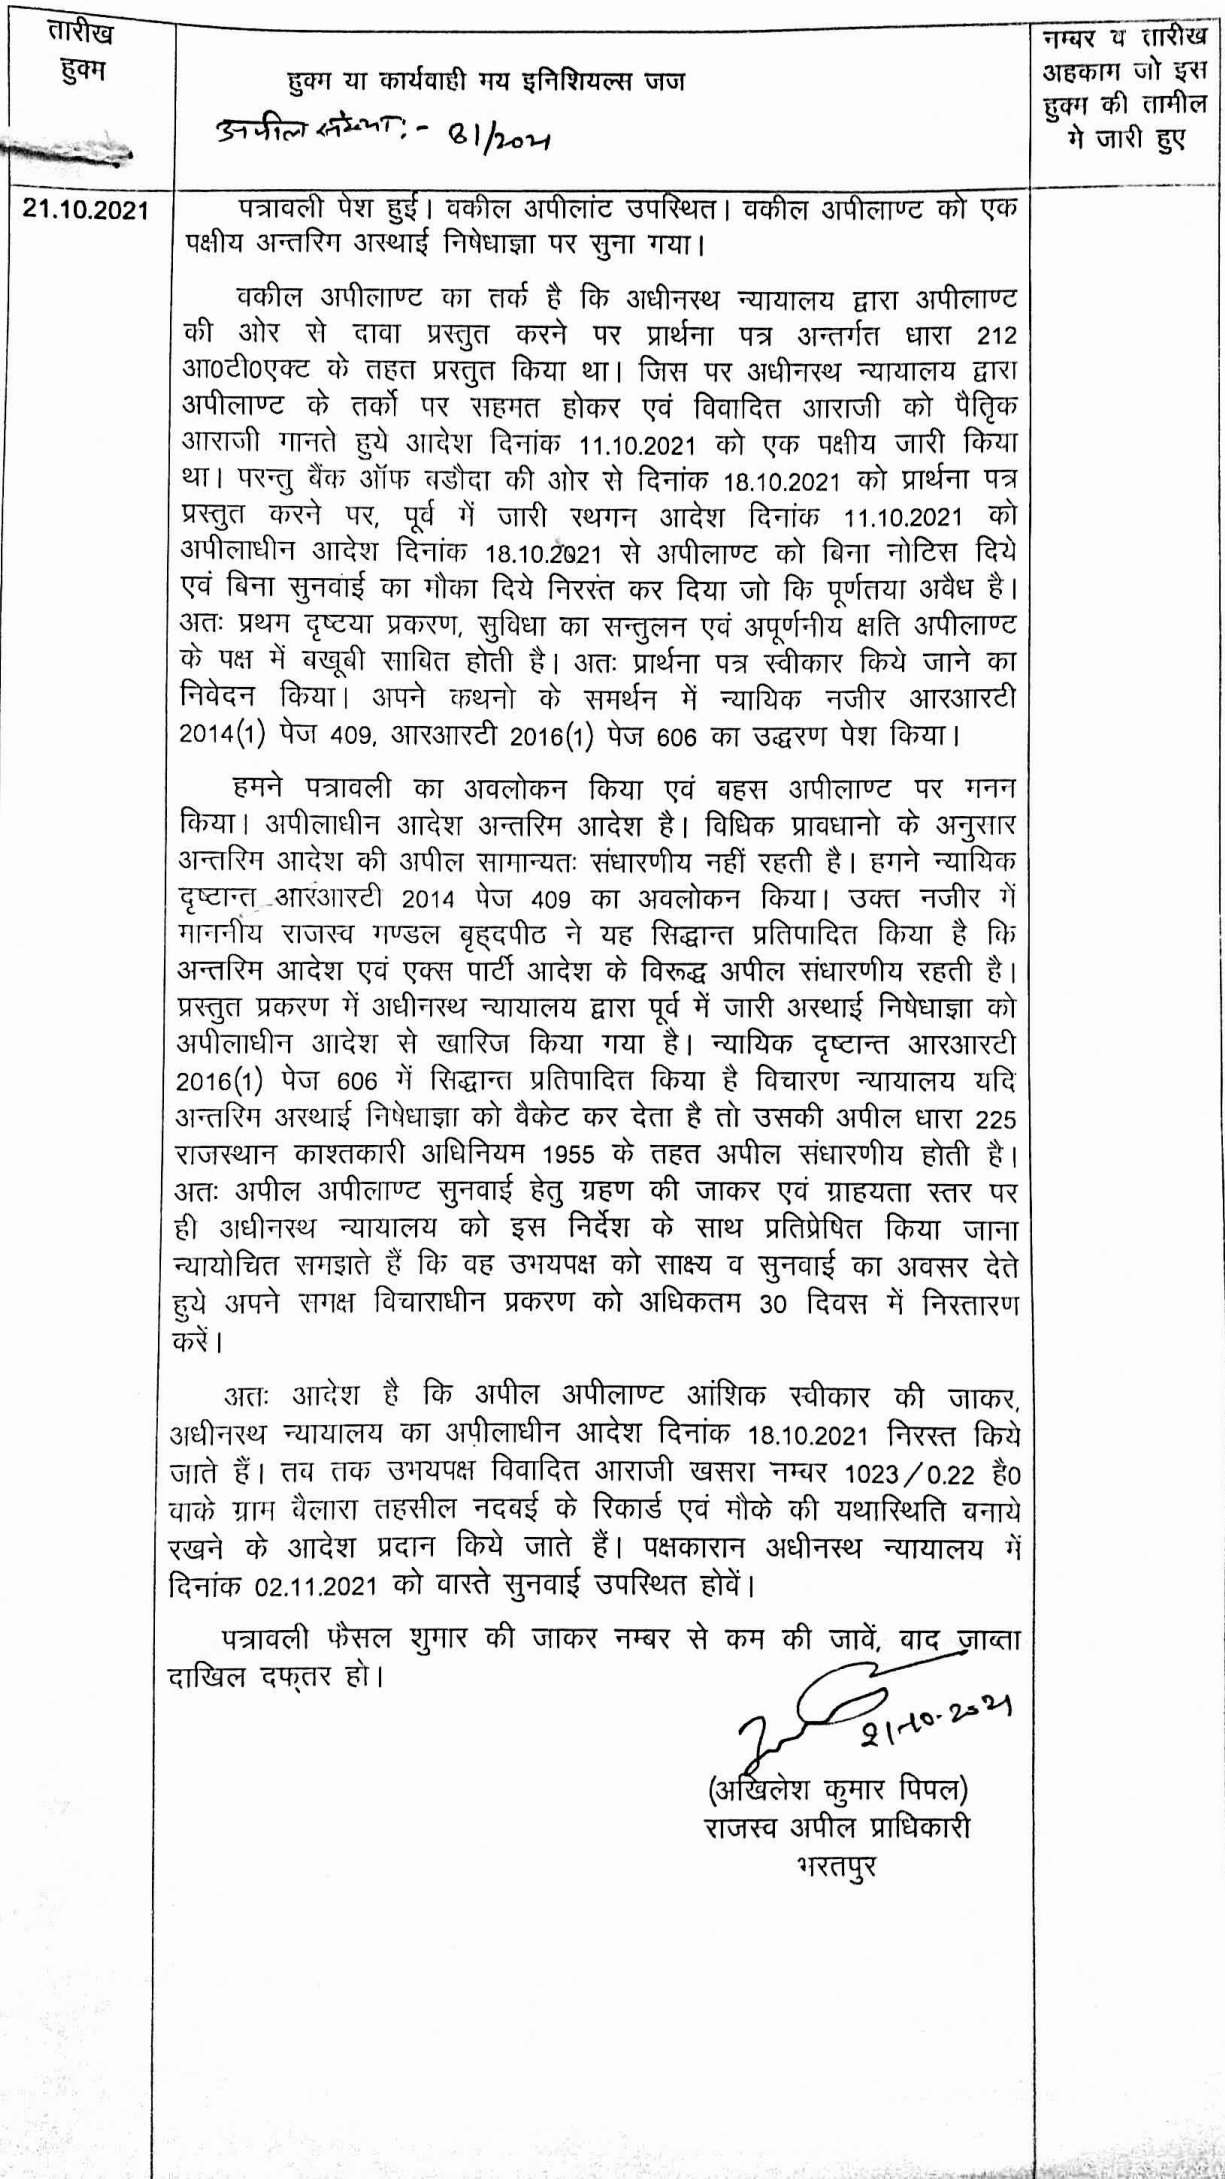 तारीख
हुक्म
हुक्म या कार्यवाही मय इनिशियल्स जज
अपील संख्या:- 81/2021
नम्बर व तारीख
अहकाम जो इस
हुक्म की तामील
मे जारी हुए
21.10.2021
पत्रावली पेश हुई। वकील अपीलांट उपस्थित। वकील अपीलाण्ट को एक
पक्षीय अन्तरिम अस्थाई निषेधाज्ञा पर सुना गया।
वकील अपीलाण्ट का तर्क है कि अधीनस्थ न्यायालय द्वारा अपीलाण्ट
की ओर से दावा प्रस्तुत करने पर प्रार्थना पत्र अन्तर्गत धारा 212
आ0टी0एक्ट के तहत प्रस्तुत किया था। जिस पर अधीनस्थ न्यायालय द्वारा
अपीलाण्ट के तर्को पर सहमत होकर एवं विवादित आराजी को पैतृिक
आराजी मानते हुये आदेश दिनांक 11.10.2021 को एक पक्षीय जारी किया
था। परन्तु बैंक ऑफ बडौदा की ओर से दिनांक 18.10.2021 को प्रार्थना पत्र
प्रस्तुत करने पर, पूर्व में जारी स्थगन आदेश दिनांक 11.10.2021 को
अपीलाधीन आदेश दिनांक 18.10.2021 से अपीलाण्ट को बिना नोटिस दिये
एवं बिना सुनवाई का मौका दिये निरस्त कर दिया जो कि पूर्णतया अवैध है।
अतः प्रथम दृष्टया प्रकरण, सुविधा का सन्तुलन एवं अपूर्णनीय क्षति अपीलाण्ट
के पक्ष में बखूबी साबित होती है। अतः प्रार्थना पत्र स्वीकार किये जाने का
निवेदन किया। अपने कथनो के समर्थन में न्यायिक नजीर आरआरटी
2014(1) पेज 409, आरआरटी 2016(1) पेज 606 का उद्धरण पेश किया।
हमने पत्रावली का अवलोकन किया एवं बहस अपीलाण्ट पर मनन
किया। अपीलाधीन आदेश अन्तरिम आदेश है। विधिक प्रावधानो के अनुसार
अन्तरिम आदेश की अपील सामान्यतः संधारणीय नहीं रहती है। हमने न्यायिक
दृष्टान्त आरआरटी 2014 पेज 409 का अवलोकन किया। उक्त नजीर में
माननीय राजस्व मण्डल बृह्दपीठ ने यह सिद्धान्त प्रतिपादित किया है कि
अन्तरिम आदेश एवं एक्स पार्टी आदेश के विरूद्ध अपील संधारणीय रहती है।
प्रस्तुत प्रकरण में अधीनस्थ न्यायालय द्वारा पूर्व में जारी अस्थाई निषेधाज्ञा को
अपीलाधीन आदेश से खारिज किया गया है। न्यायिक दृष्टान्त आरआरटी
2016(1) पेज 606 में सिद्धान्त प्रतिपादित किया है विचारण न्यायालय यदि
अन्तरिम अस्थाई निषेधाज्ञा को वैकेट कर देता है तो उसकी अपील धारा 225
राजस्थान काश्तकारी अधिनियम 1955 के तहत अपील संधारणीय होती है।
अतः अपील अपीलाण्ट सुनवाई हेतु ग्रहण की जाकर एवं ग्राहयता स्तर पर
ही अधीनस्थ न्यायालय को इस निर्देश के साथ प्रतिप्रेषित किया जाना
न्यायोचित समझते हैं कि वह उभयपक्ष को साक्ष्य व सुनवाई का अवसर देते
हुये अपने समक्ष विचाराधीन प्रकरण को अधिकतम 30 दिवस में निस्तारण
करें।
अतः आदेश है कि अपील अपीलाण्ट आंशिक स्वीकार की जाकर,
अधीनस्थ न्यायालय का अपीलाधीन आदेश दिनांक 18.10.2021 निरस्त किये
जाते हैं। तब तक उभयपक्ष विवादित आराजी खसरा नम्बर 1023/0.22 है0
वाके ग्राम बैलारा तहसील नदबई के रिकार्ड एवं मौके की यथास्थिति बनाये
रखने के आदेश प्रदान किये जाते हैं। पक्षकारान अधीनस्थ न्यायालय में
दिनांक 02.11.2021 को वास्ते सुनवाई उपस्थित होवें।
पत्रावली फैसल शुमार की जाकर नम्बर से कम की जावें, बाद जाब्ता
दाखिल दफ्तर हो।
21-10-2021
(अखिलेश कुमार पिपल)
राजस्व अपील प्राधिकारी
भरतपुर